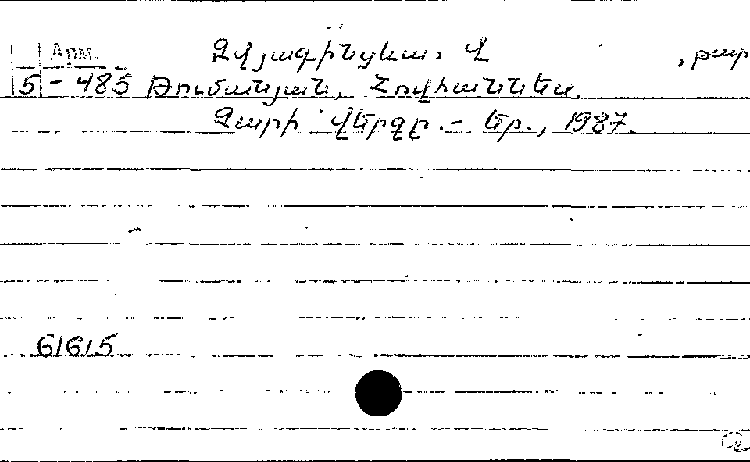 Арм. Զվյագինցևա, Վ , թար
5 - 485 Թումանյան, Հովհաննես.
Չարի վերջը. - Եր., 1987.
61615